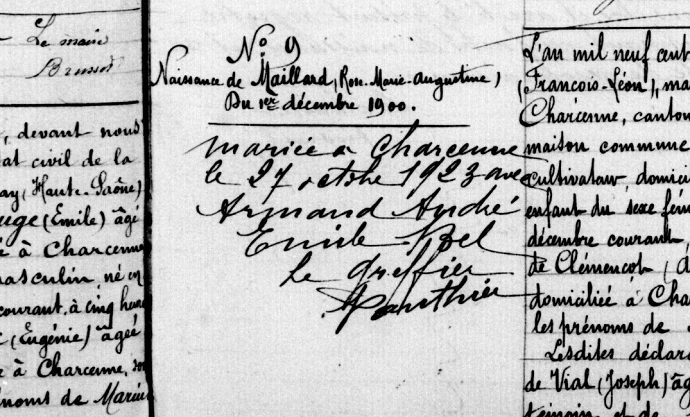 Le maire
Brusset
, devant nous
at civil de la
ay, (Haute-Saône)
uge (Emile) âgé
e à Charcenne
masculin, né en
courant, à cinq heure
(Eugénie) âgée
e à Charcenne, son
énoms de Marius
N° 9
Naissance de Maillard, (Rose-Marie-Augustine)
Du 1er décembre 1900.
mariée à Charcenne
le 27 octobre 1923 avec
Armand André
Emile Noel
Le Greffier
L'an mil neuf cent
(François-Léon), mai
Charcenne, canton
maison commune
cultivateur, domici
enfant du sexe fém
décembre courant,
de Clémencot, (
domiciliée à Cha
les prénoms de
Lesdites déclara
de Vial, (Joseph) âg
témoin, et de